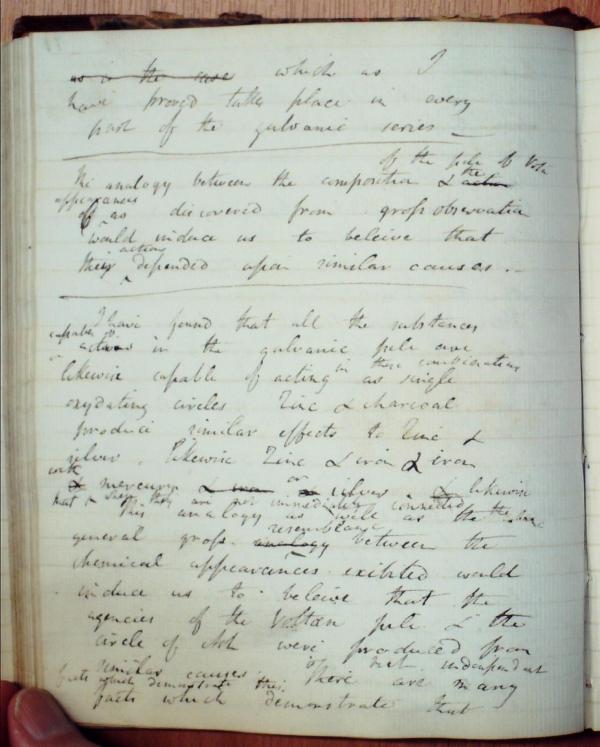 as is the case which as I
have proved takes place in every
part of the galvanic series
of the pile of Volta
The analogy between the composition & the action
appearances
of as discovered from gross observation
would induce us to beleive that
action
their depended upon similar causes.
I have found that all the substances
capable of
active in the galvanic pile are
in these combinations
likewise capable of acting as single
oxydating circles. Zinc & charcoal
produce similar effects to Zinc &
silver. likewise Zinc & iron & iron
with
& mercury & iron or & silver. & likewise
they are not immediately connected
This analogy as well as the the same
resemblance
general gross analogy between the
chemical appearances exibited would
induce us to beleive that the
agencies of the Voltan pile & the
circle of Ash were produced from
if not independent
similar causes. There are many
facts which demonstrate this.
facts which demonstrate that